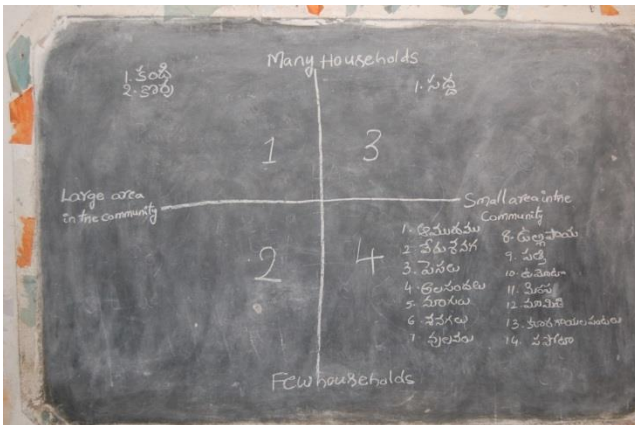 Many Households
1. కంది
2. కొర్ర
1. సద్ద
1
3
Large area
in the community
Small area in the
Community
2
4
1. ఆముదము
2. వేరుశెనగ
3. పెసలు
4. అలసందలు
5. నూగులు
6. శెనగలు
7. వులవలు
8. ఉల్లిపాయ
9. పత్తి
10. టమోటా
11. మిరప
12. మామిడి
13. కూరగాయల పంటలు
14. సపోటా
Few households